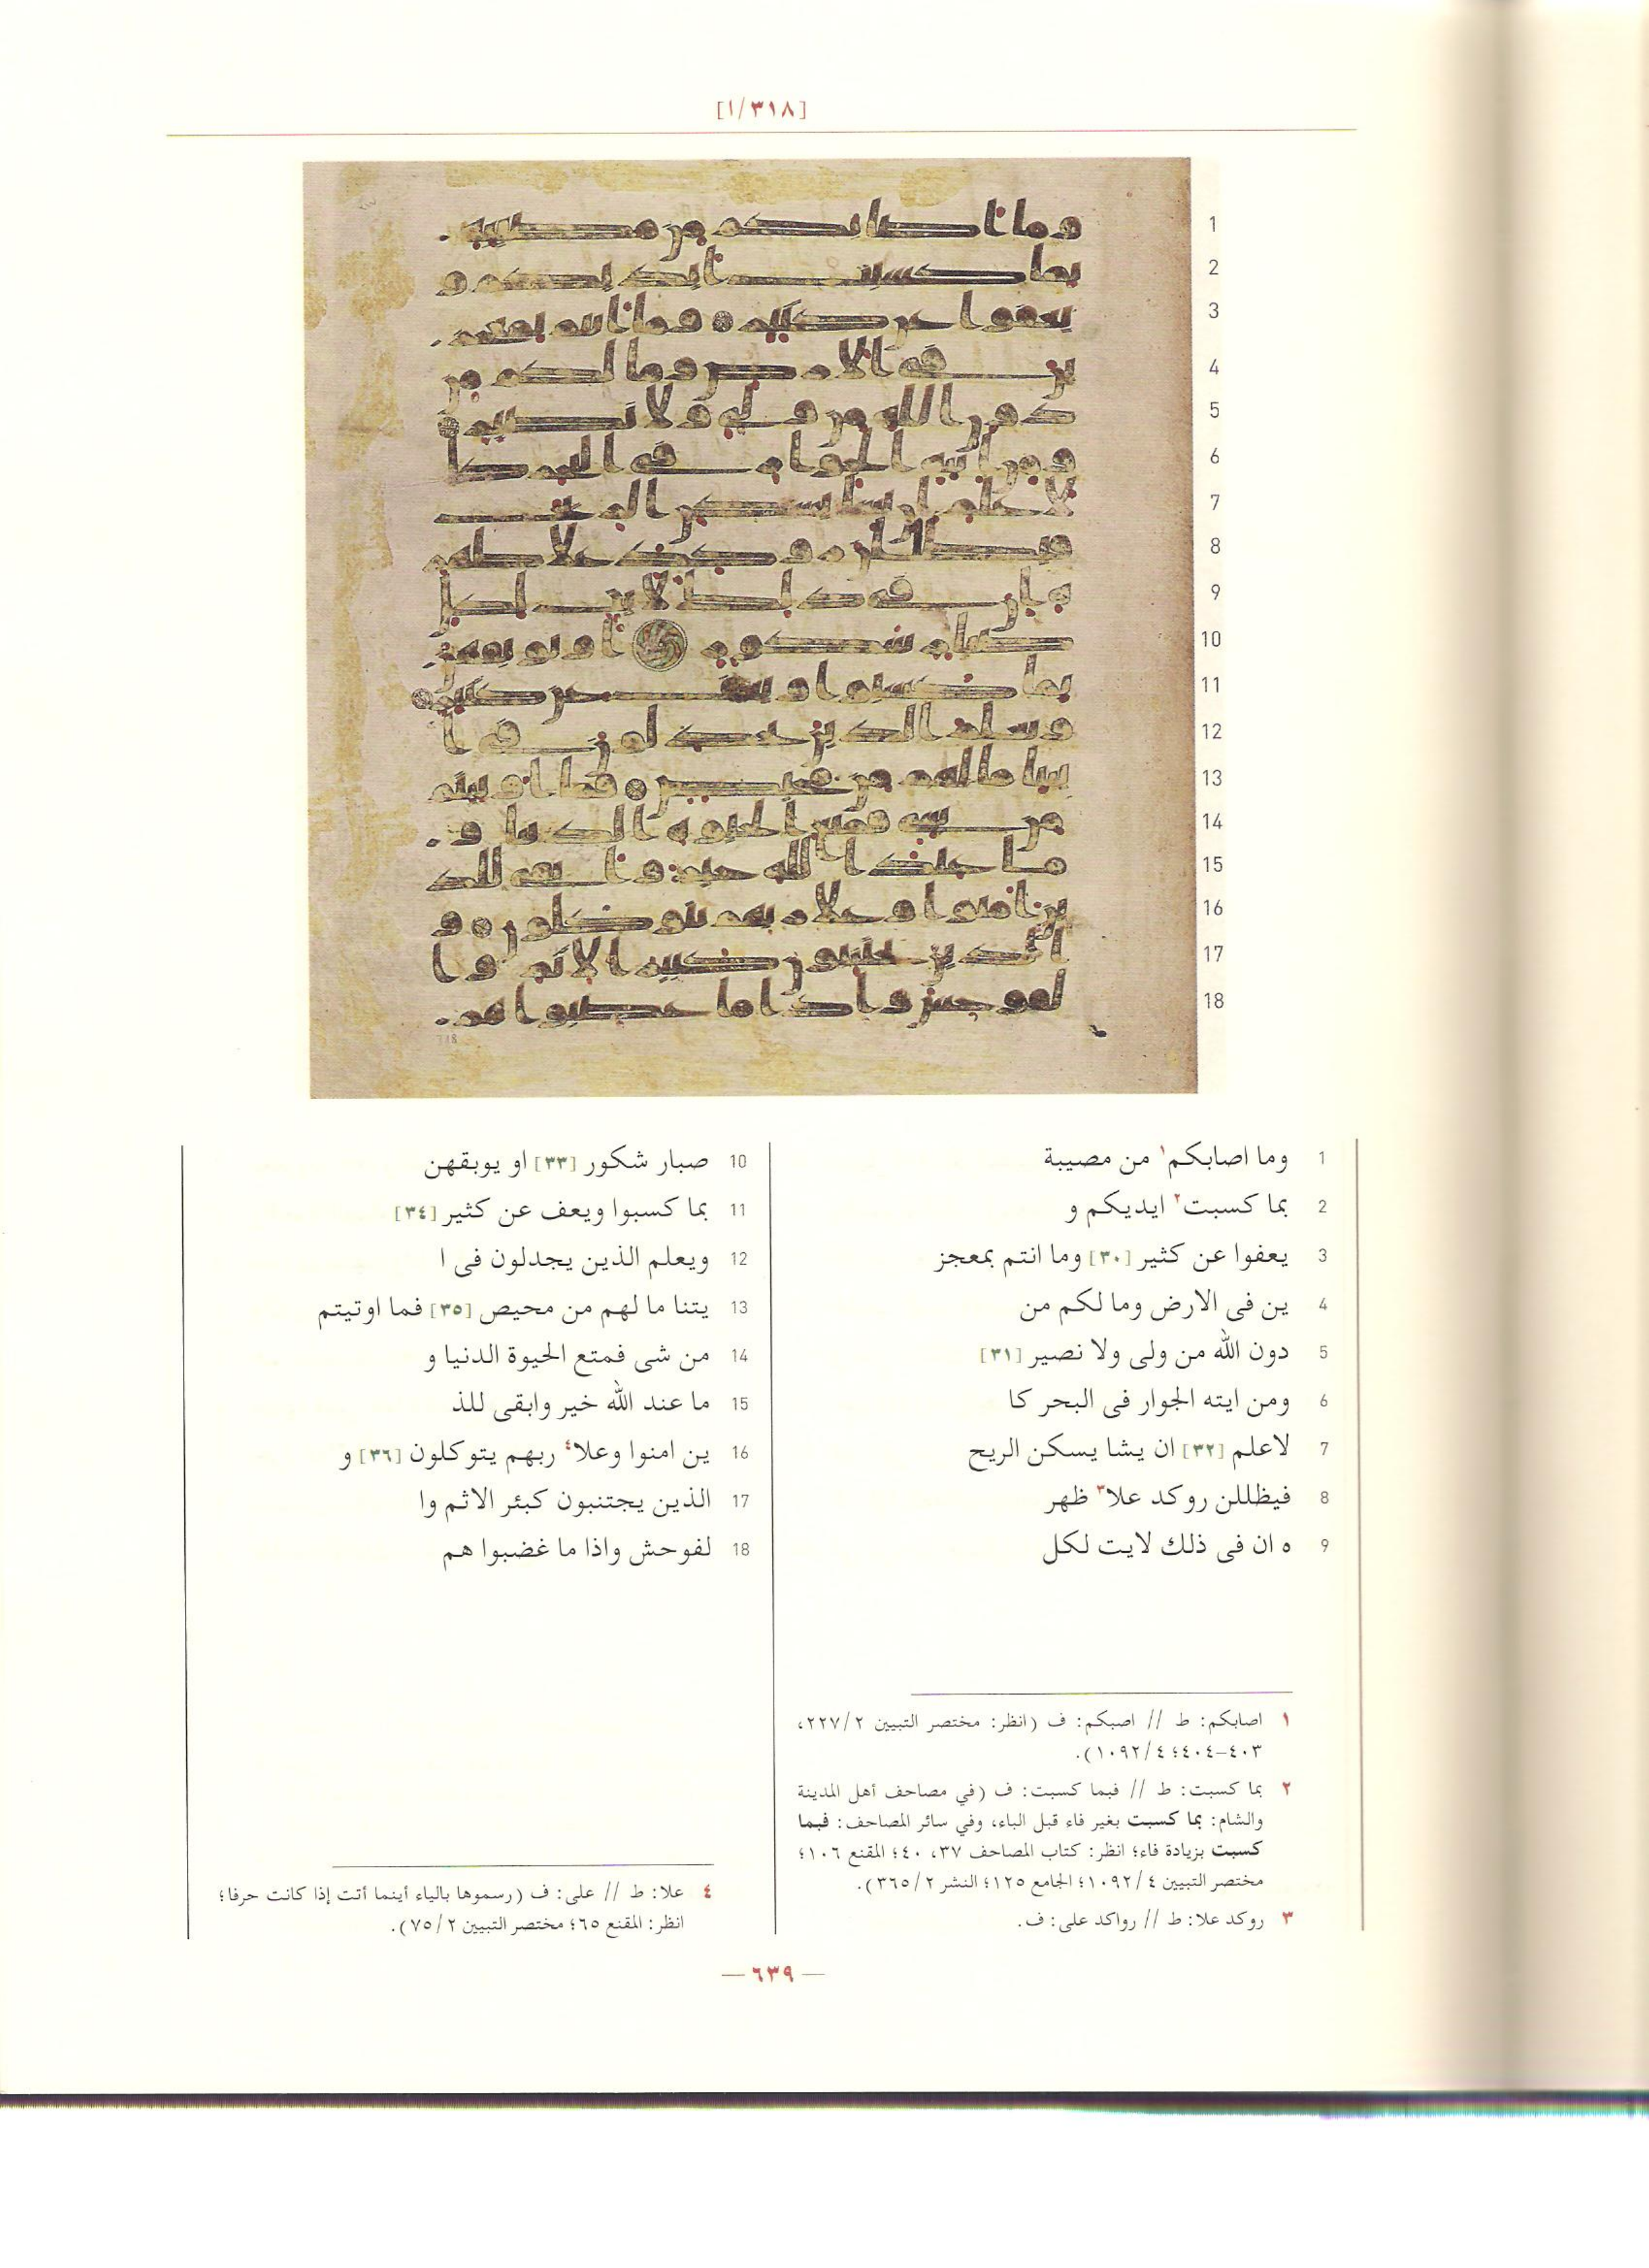 [٣١٨/١]
1 وما اصابكم١ من مصيبة
2 بما كسبت٢ ايديكم و
3 يعفوا عن كثير [٣٠] وما انتم بمعجز
4 ين فى الارض وما لكم من
5 دون الله من ولى ولا نصير [٣١]
6 ومن ايته الجوار فى البحر كا
7 لاعلم [٣٢] ان يشا يسكن الريح
8 فيظللن روكد علا٣ ظهر
9 ه ان فى ذلك لايت لكل
10 صبار شكور [٣٣] او يوبقهن
11 بما كسبوا ويعف عن كثير [٣٤]
12 ويعلم الذين يجدلون فى ا
13 يتنا ما لهم من محيص [٣٥] فما اوتيتم
14 من شى فمتع الحيوة الدنيا و
15 ما عند الله خير وابقى للذ
16 ين امنوا وعلا٤ ربهم يتوكلون [٣٦] و
17 الذين يجتنبون كبئر الاثم وا
18 لفوحش واذا ما غضبوا هم
١ اصابكم: ط // اصبكم: ف (انظر: مختصر التبيين ٢٢٧/٢،
٤٠٣-٤٠٤؛ ١٠٩٢/٤).
٢ بما كسبت: ط // فبما كسبت: ف (في مصاحف أهل المدينة
والشام: بما كسبت بغير فاء قبل الباء، وفي سائر المصاحف: فبما
كسبت بزيادة فاء؛ انظر: كتاب المصاحف ٣٧، ٤٠؛ المقنع ١٠٦؛
مختصر التبيين ١٠٩٢/٤؛ الجامع ١٢٥؛ النشر ٣٦٥/٢).
٣ روكد علا: ط // رواكد على: ف.
٤ علا: ط // على: ف (رسموها بالياء أينما أتت إذا كانت حرفا؛
انظر: المقنع ٦٥؛ مختصر التبيين ٧٥/٢).
— ٦٣٩ —